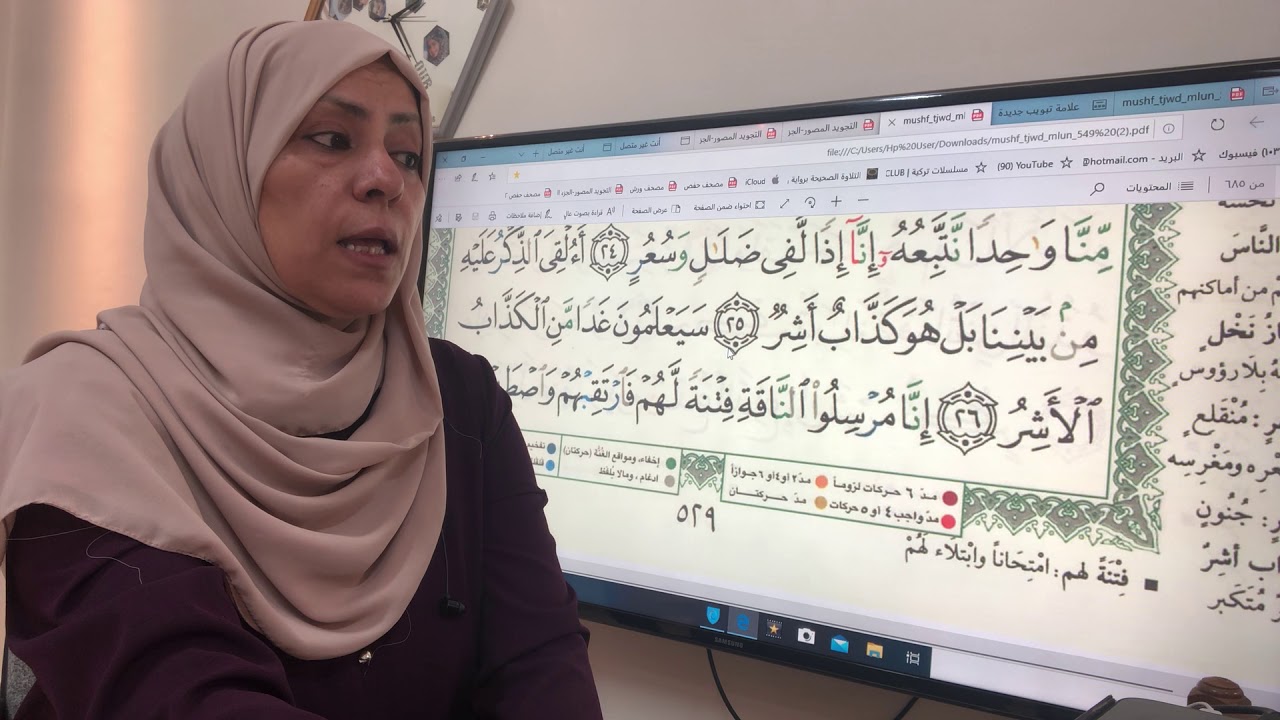 علامة تبويب جديدة
mushf_tjwd_mlun_
mushf_tjwd_ml
التجويد المصور-الجز
التجويد المصور-الجز
أنت غير متصل
أنت غير متصل
file:///C:/Users/Hp%20User/Downloads/mushf_tjwd_mlun_549%20(2).pdf
فيسبوك
البريد - hotmail.com
(90) YouTube
مسلسلات تركية | CLUB
التلاوة الصحيحة برواية
iCloud
مصحف حفص
مصحف ورش
التجويد المصور-الجزء
مصحف حفص
من ٦٨٥
المحتويات
احتواء ضمن الصفحة
عرض الصفحة
قراءة بصوت عالٍ
إضافة ملاحظات
مِّنَّا وَٰحِدًا نَّتَّبِعُهُۥٓ إِنَّآ إِذًا لَّفِى ضَلَٰلٍ وَسُعُرٍ ٢٤ أَءُلْقِىَ ٱلذِّكْرُ عَلَيْهِ
مِنۢ بَيْنِنَا بَلْ هُوَ كَذَّابٌ أَشِرٌ ٢٥ سَيَعْلَمُونَ غَدًا مَّنِ ٱلْكَذَّابُ
ٱلْأَشِرُ ٢٦ إِنَّا مُرْسِلُوا۟ ٱلنَّاقَةِ فِتْنَةً لَّهُمْ فَٱرْتَقِبْهُمْ
مدّ ٦ حركات لزوماً
مدّ ٢ او ٤ او ٦ جوازاً
إخفاء، ومواقع الغُنَّة (حركتان)
مدّ واجب ٤ او ٥ حركات
مدّ حركتان
ادغام ، ومالا يُلفَظ
٥٢٩
فِتْنَةً لهم: امْتِحَاناً وابْتِلاء لَهُمْ
النَّاسَ
من أماكنهم
نَخْلٍ
بِلَا رؤوسٍ
مُنْقَلِعٍ
ومَغْرِسه
جُنُونٍ
أشِرٌ
مُتَكَبر
SAMSUNG